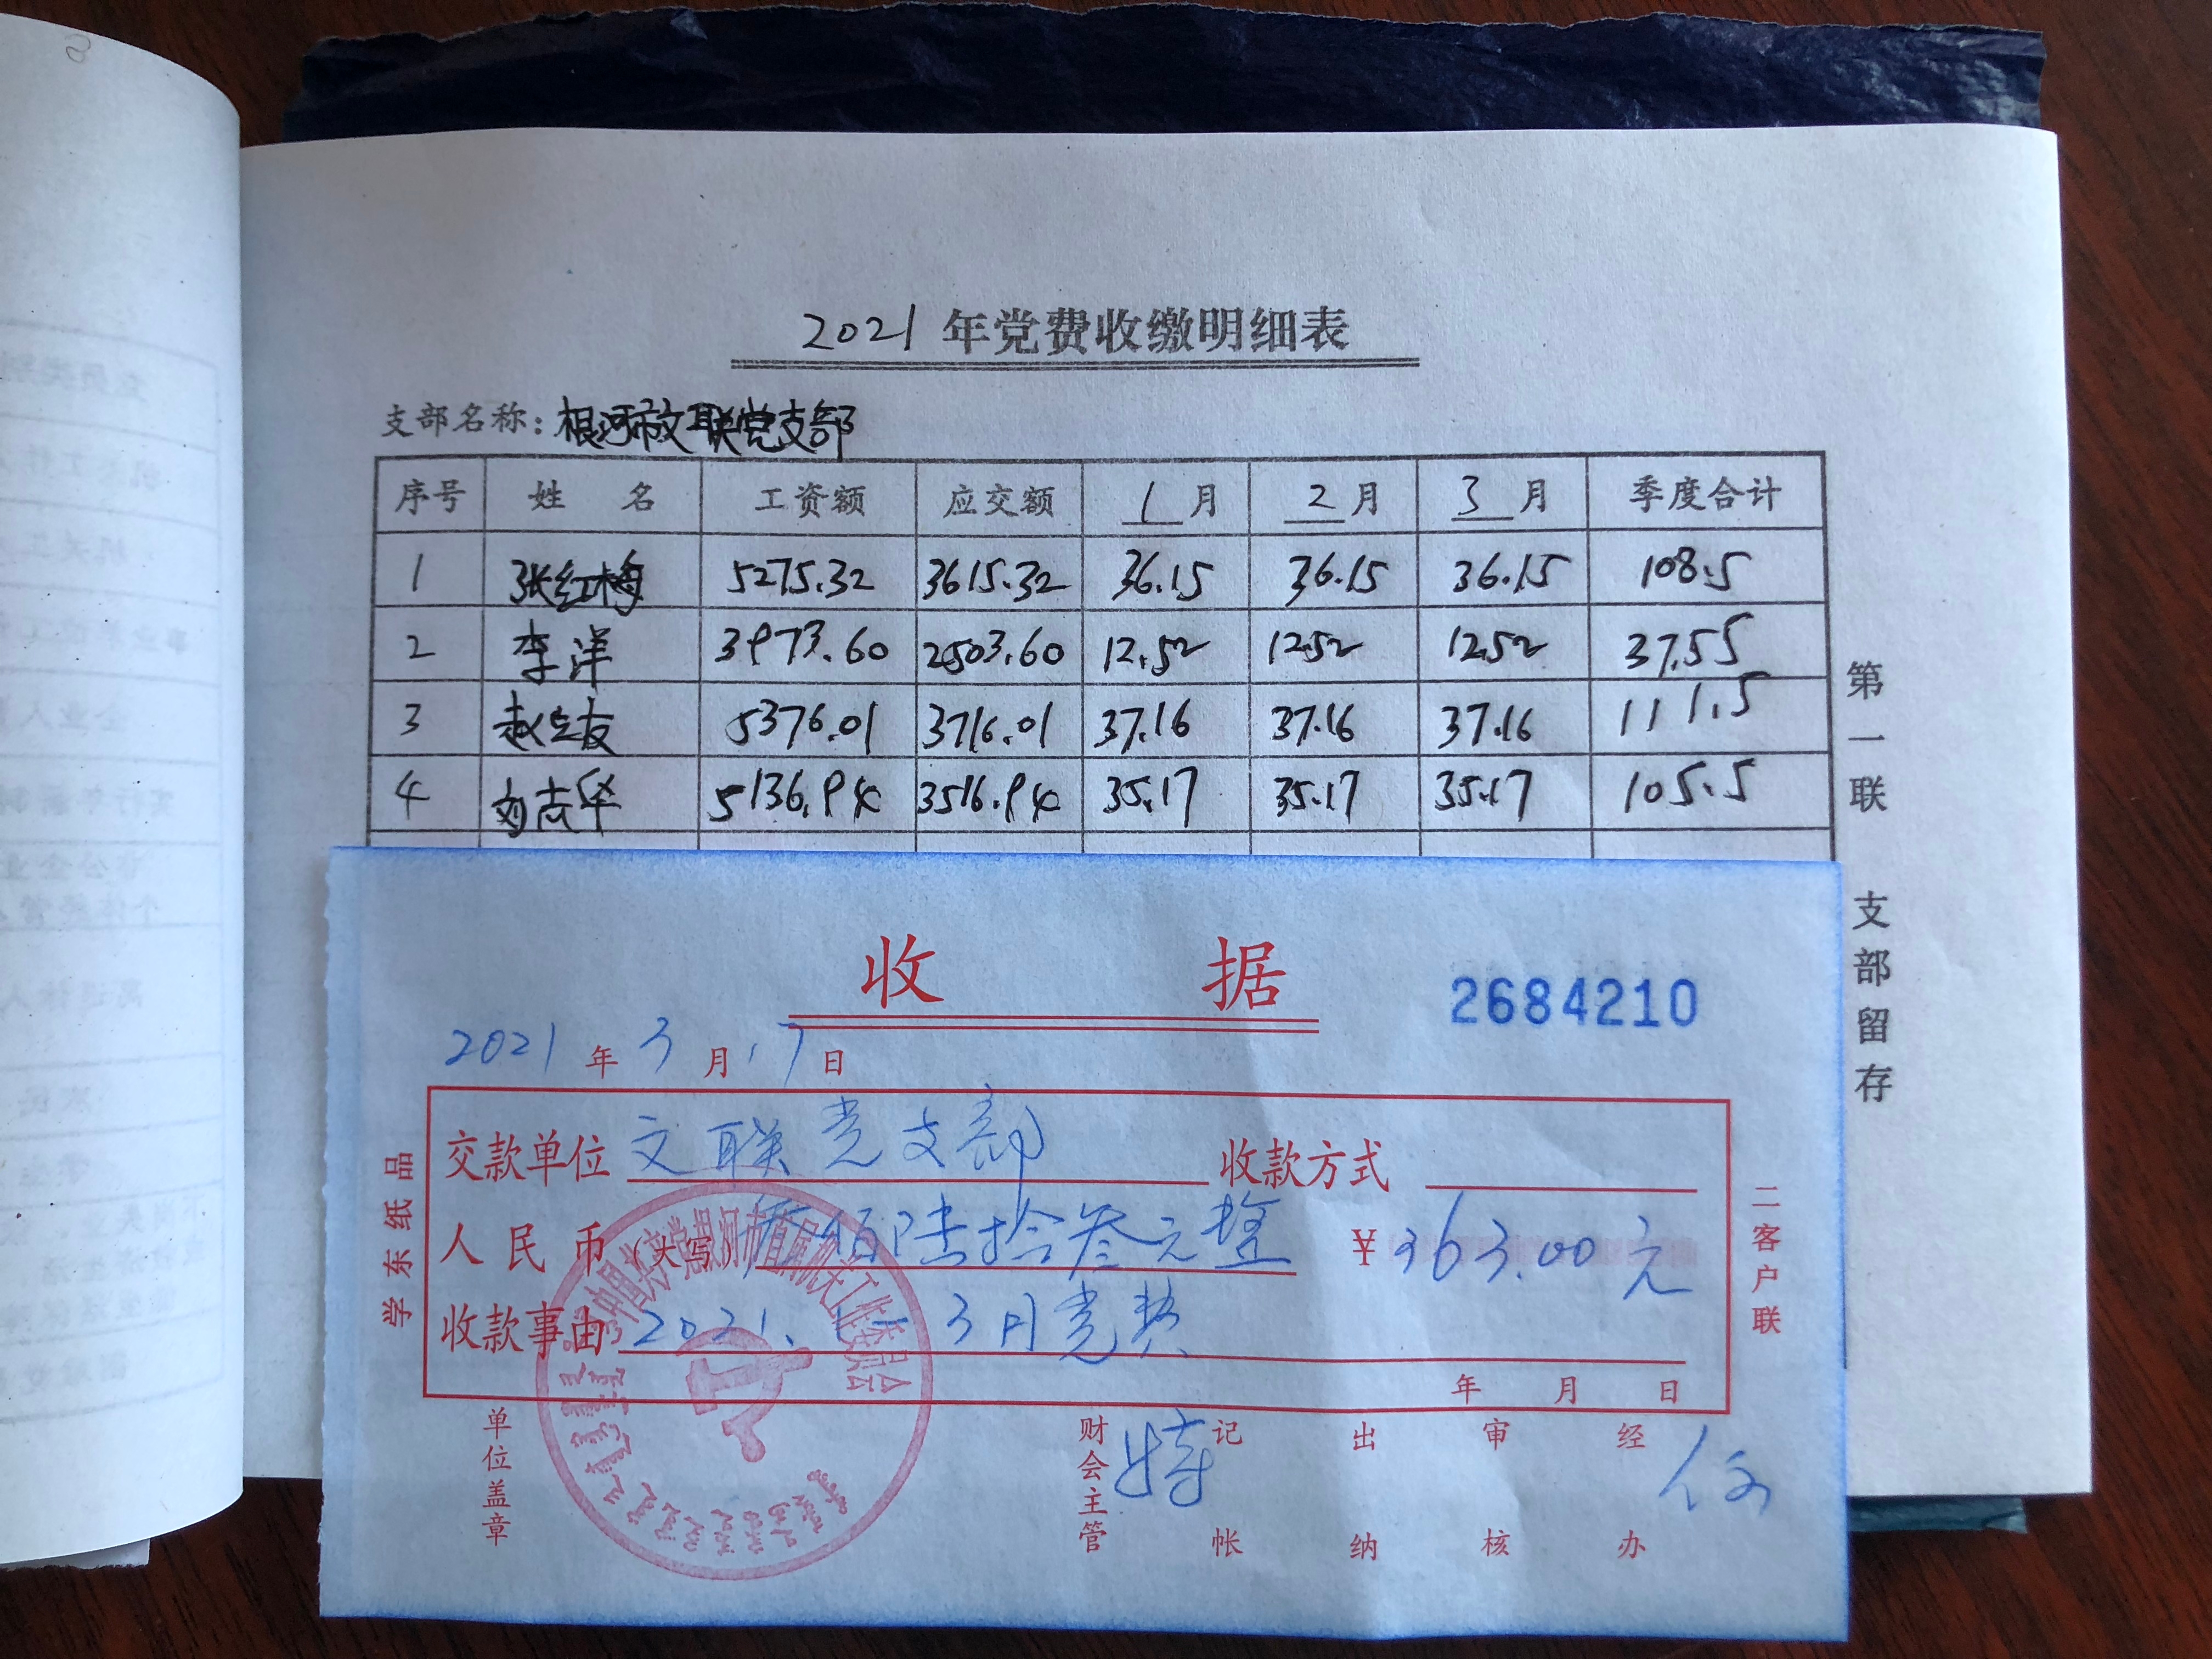 2021年党费收缴明细表
支部名称：根河市文联党支部
序号 姓名 工资额 应交额 1月 2月 3月 季度合计
1 张红梅 5275.32 3615.32 36.15 36.15 36.15 108.5
2 李洋 3973.60 2503.60 12.52 12.52 12.52 37.55
3 赵立友 5376.01 3716.01 37.16 37.16 37.16 111.5
4 刘志华 5136.94 3516.94 35.17 35.17 35.17 105.5
第一联 支部留存
收据
2684210
2021年3月17日
交款单位 文联党支部 收款方式
人民币（大写） 叁佰陆拾叁元整 ¥363.00元
收款事由 2021.1-3月党费
年 月 日
学东纸品
二客户联
单位盖章 财会主管 记帐 出纳 审核 经办